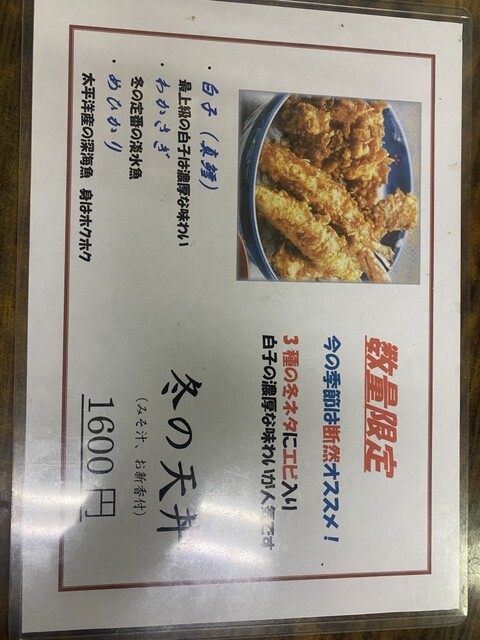 数量限定
今の季節は断然オススメ！
3種の冬ネタにエビ入り
白子の濃厚な味わいが人気です
・白子（真鱈）
最上級の白子は濃厚な味わい
・わかさぎ
冬の定番の淡水魚
・めひかり
太平洋産の深海魚 身はホクホク
冬の天丼
（みそ汁、お新香付）
1600円